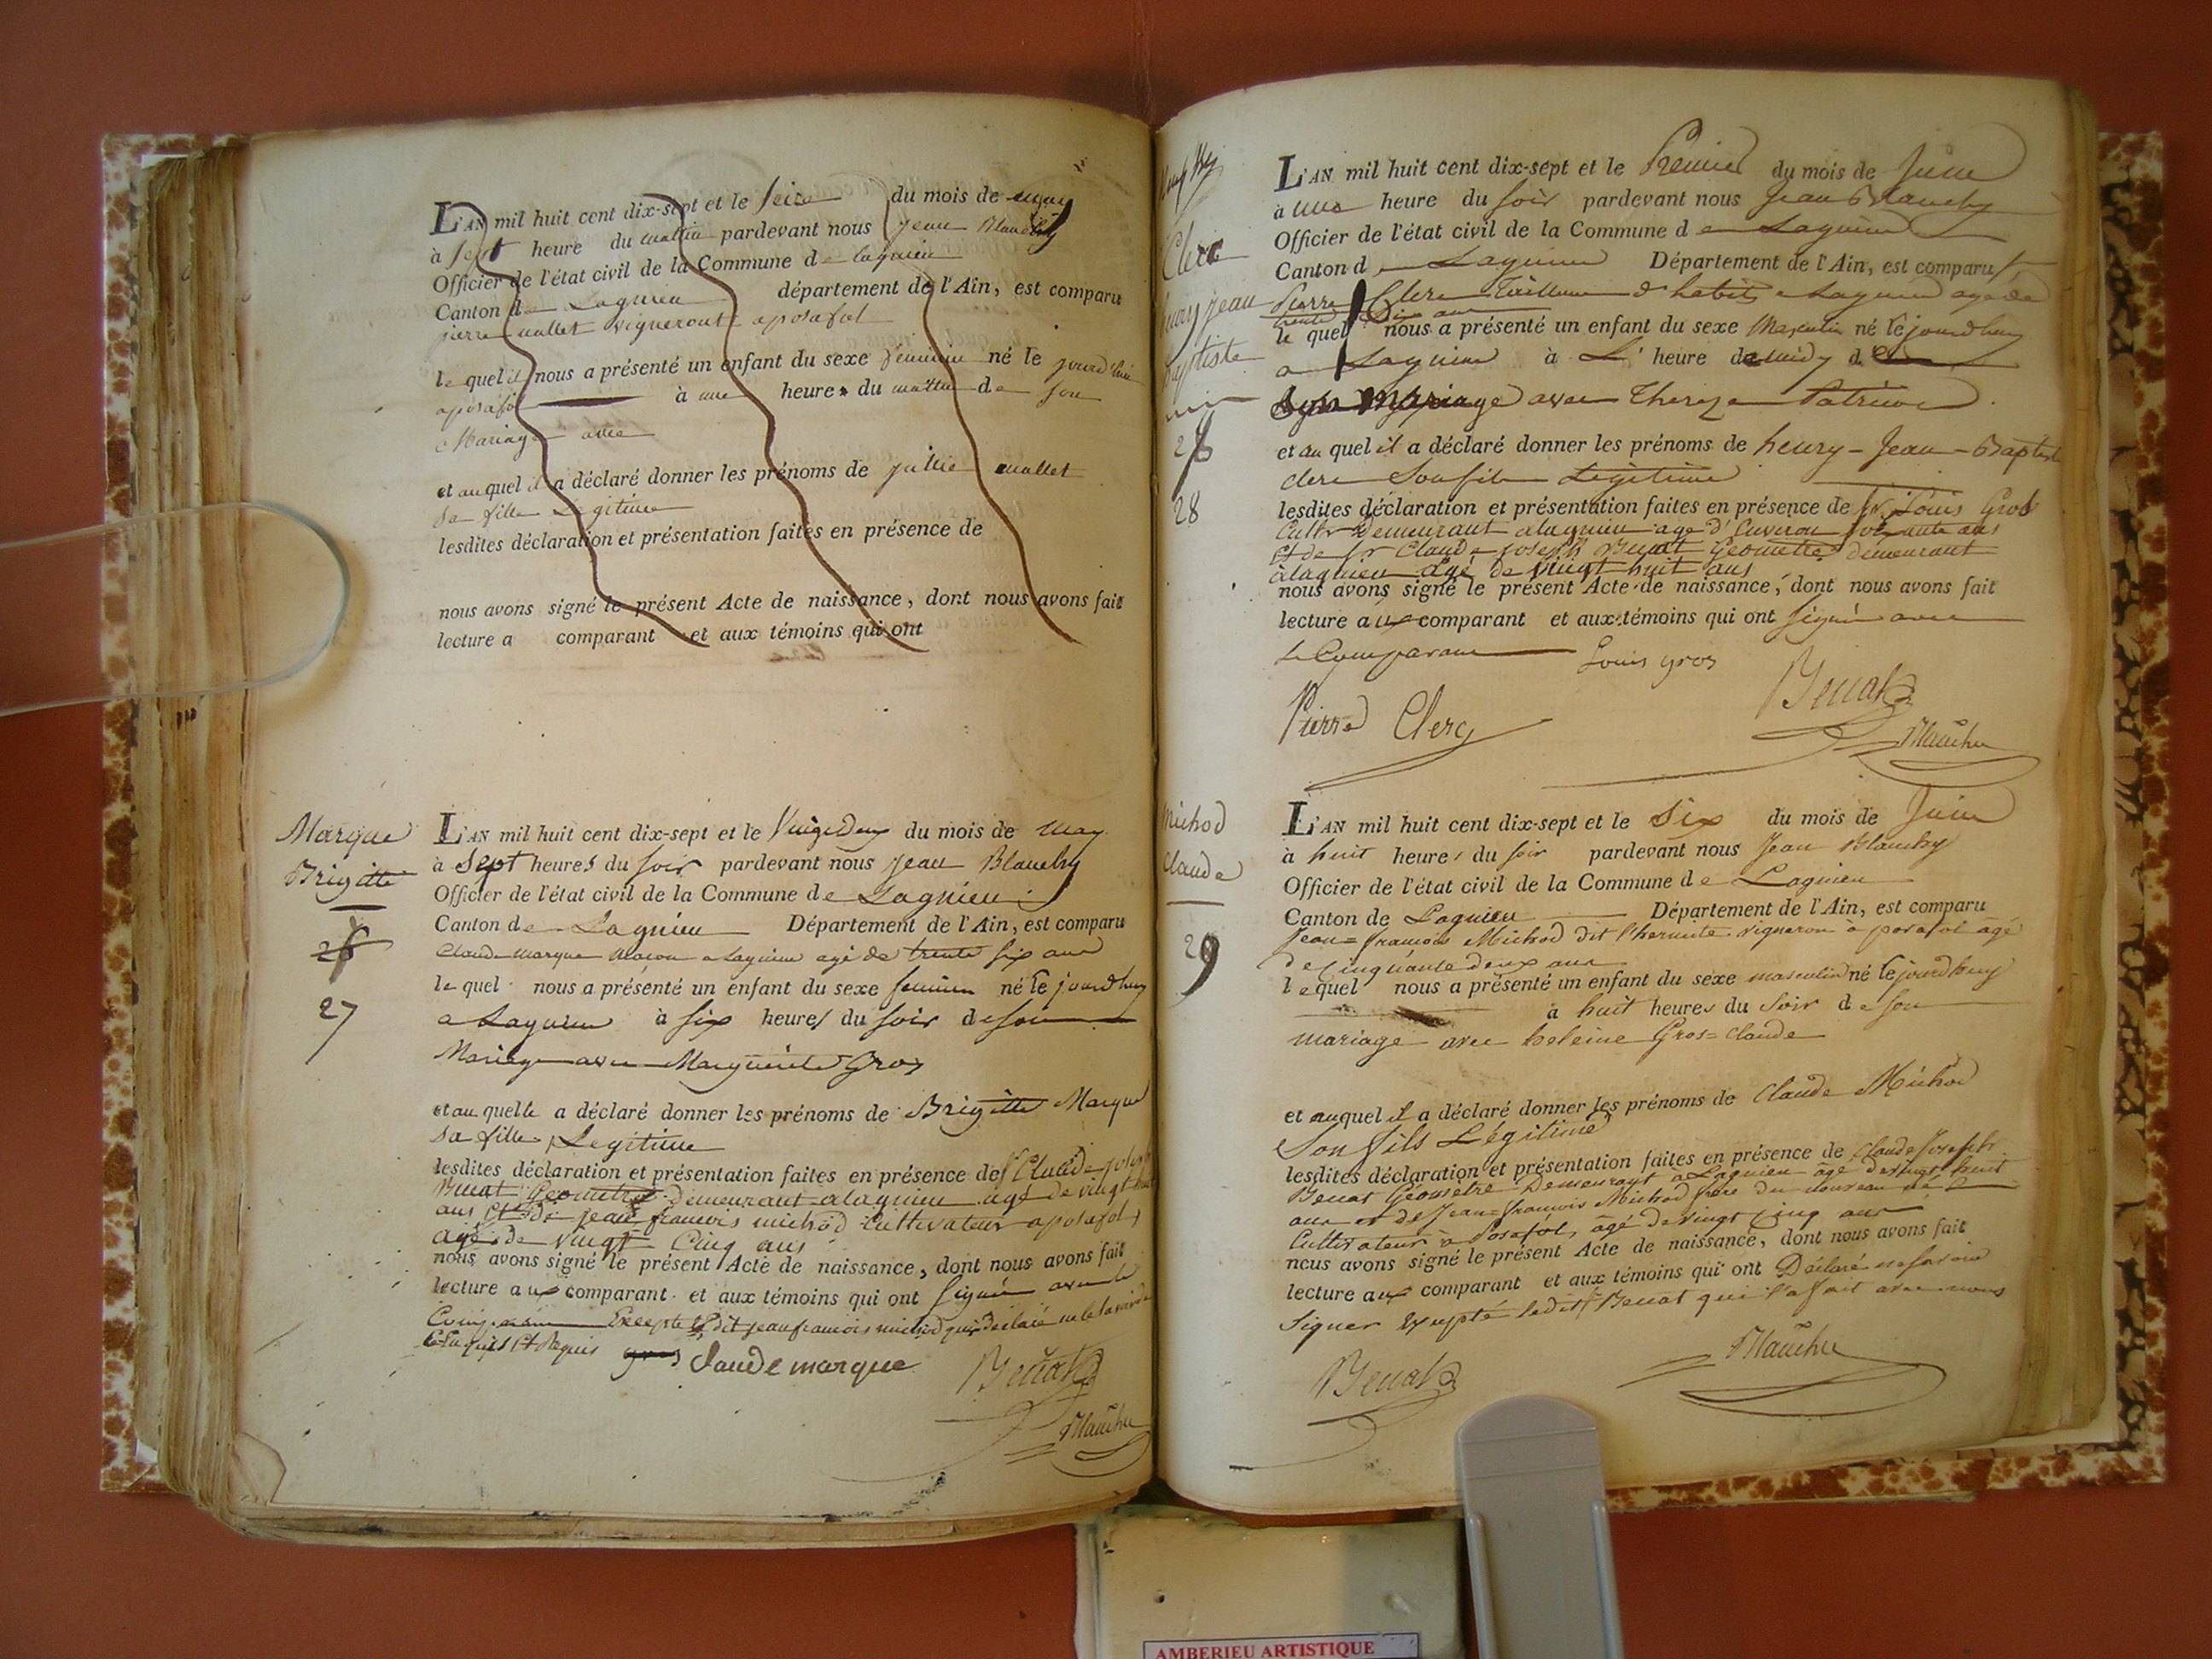 L'AN mil huit cent dix-sept et le seize du mois de may
à sept heure du matin pardevant nous Jean Blanchy
Officier de l'état civil de la Commune de lagnieu
Canton de Lagnieu département de l'Ain, est comparu
pierre mallet vigneront a posafol
le quel il nous a présenté un enfant du sexe féminin né le jourd'hui
a posafol à une heure du matin de son
Mariage avec
et au quel il a déclaré donner les prénoms de jullie mallet
Sa fille Légitime
lesdites déclaration et présentation faites en présence de
nous avons signé le présent Acte de naissance, dont nous avons fait
lecture a comparant et aux témoins qui ont
Marque
Brigitte
27
L'AN mil huit cent dix-sept et le Vingt Deux du mois de May
à Sept heures du soir pardevant nous Jean Blanchy
Officier de l'état civil de la Commune de Lagnieu
Canton de Lagnieu Département de l'Ain, est comparu
Claude Marque Macon a Lagnieu agé de trente six ans
le quel nous a présenté un enfant du sexe feminin né le jourdhuy
a Lagnieu à six heures du soir de son
Mariage avec Marguerite Gros
et au quelle a déclaré donner les prénoms de Brigitte Marque
Sa fille Legitime
lesdites déclaration et présentation faites en présence de Sr Claude joseph
Benat Géometre demeurant a lagnieu agé de vingt huit
ans Et de jean francois michod Cultivateur a posafol
agé de vingt Cinq ans
nous avons signé le présent Acte de naissance, dont nous avons fait
lecture aux comparant et aux témoins qui ont signé avec le
Comparant Excepté ledit jean francois michod qui a déclaré ne le savoir
Enquis Et Requis Claude marque
Benat
Blanchy
Clerc
henry jean
baptiste
28
L'AN mil huit cent dix-sept et le Premier du mois de Juin
à une heure du soir pardevant nous Jean Blanchy
Officier de l'état civil de la Commune de Lagnieu
Canton de Lagnieu Département de l'Ain, est comparu
Pierre Clerc Tailleur d'habits a Lagnieu agé de
trente Six ans
le quel nous a présenté un enfant du sexe Masculin né le jourdhuy
a Lagnieu à L' heure de midy de
Son Mariage avec Thereze
et au quel il a déclaré donner les prénoms de henry - Jean - Baptiste
clerc Son fils Légitime
lesdites déclaration et présentation faites en présence de Sr Louis Gros
Cultr Demeurant a lagnieu age d'Environ soixante ans
Et de Sr Claude joseph Benat Géometre demeurant
à lagnieu agé de vingt huit ans
nous avons signé le présent Acte de naissance, dont nous avons fait
lecture aux comparant et aux témoins qui ont signé avec
le Comparant Louis gros
Pierre Clerc
Benat
Blanchy
Michod
Claude
29
L'AN mil huit cent dix-sept et le Six du mois de Juin
à huit heures du soir pardevant nous Jean Blanchy
Officier de l'état civil de la Commune de Lagnieu
Canton de Lagnieu Département de l'Ain, est comparu
Jean=francois Michod dit l'hermite vigneron à posafol agé
de Cinquante deux ans
lequel nous a présenté un enfant du sexe masculin né le jourdhuy
à huit heures du Soir de son
mariage avec heleine Gros=Claude
et auquel il a déclaré donner les prénoms de Claude Michod
Son fils Légitime
lesdites déclaration et présentation faites en présence de Claude Joseph
Benat Géometre Demeurant à Lagnieu âgé de vingt huit
ans et de Jean=francois Michod frère du nouveau né
Cultivateur à Posafol, âgé de vingt Cinq ans
nous avons signé le présent Acte de naissance, dont nous avons fait
lecture aux comparant et aux témoins qui ont Déclaré ne savoir
Signer Excepté ledit Sr Benat qui l'a fait avec nous
Benat
Blanchy
AMBERIEU ARTISTIQUE